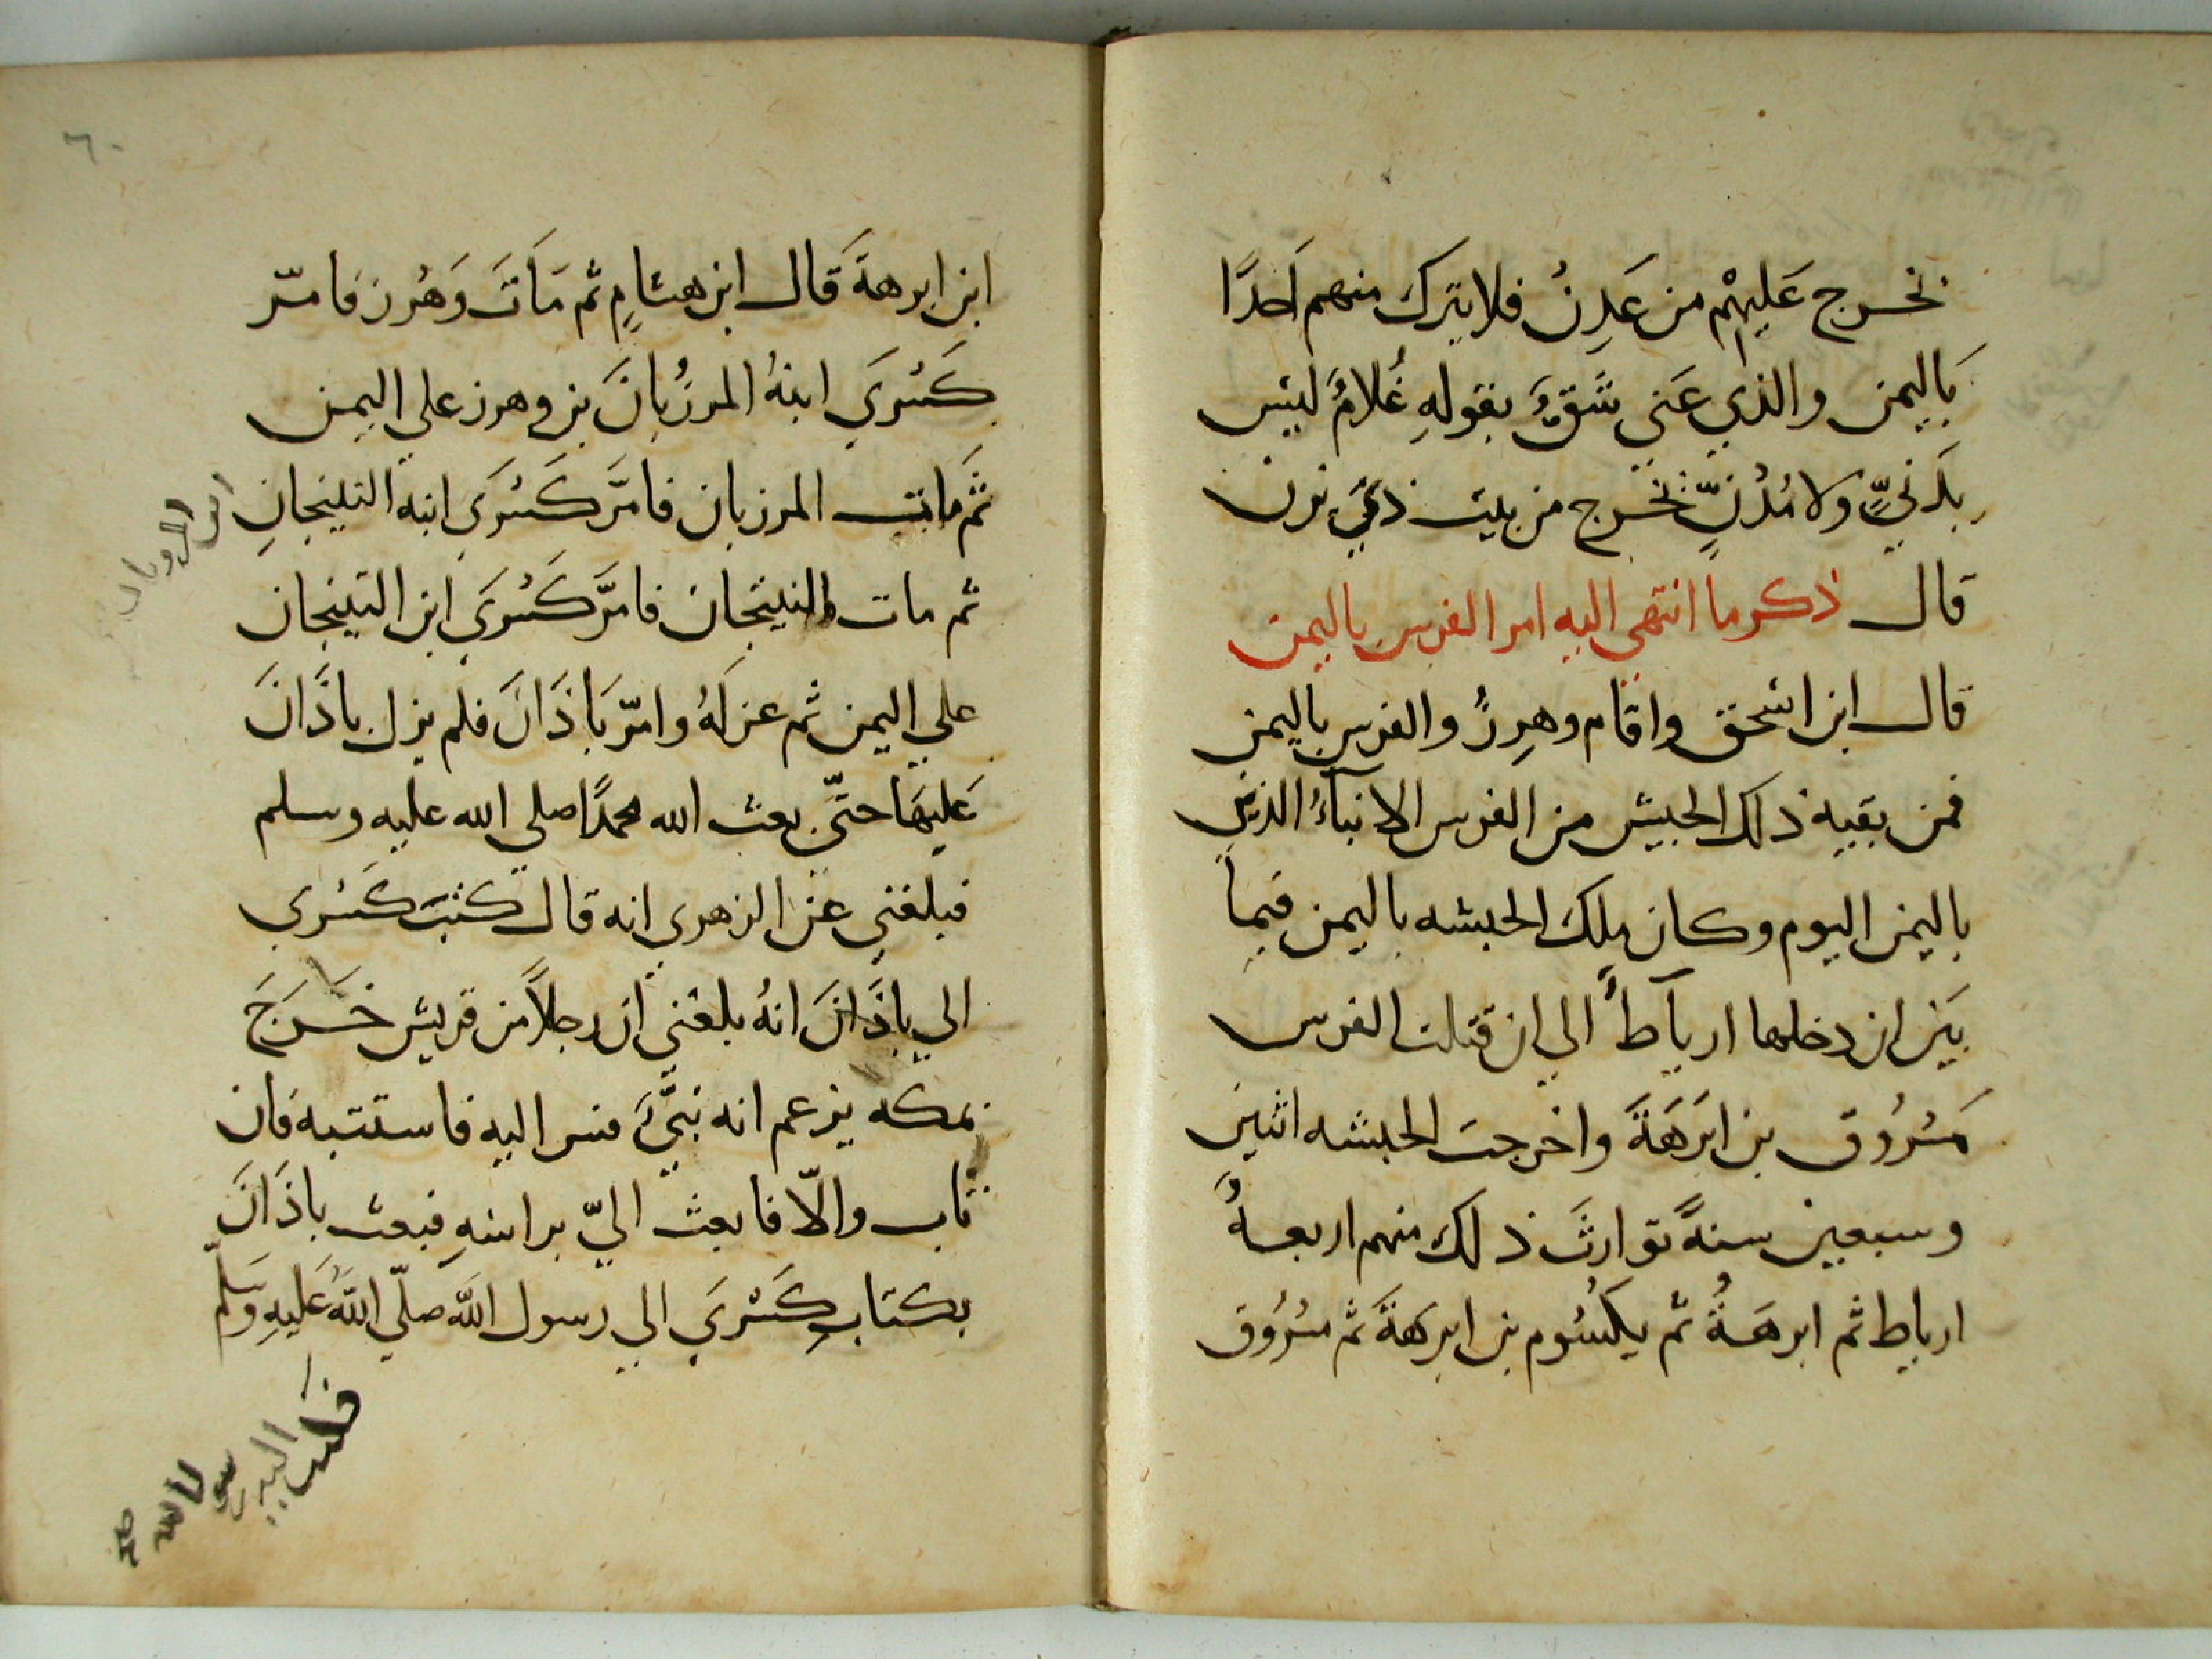 يخرج عَليهْم من عَدِنُ فلا يترك منهم اَحَدًا
بَاليمن والذي عَني شَقٌ بقولهِ غُلامٌ ليَس
بَدنيٍّ ولا مُدْنٍّ يخَرج من بيت ذي يزن
قال ذكر ما انتهى اليه امر الفرس باليمن
قال ابن اسْحق واقام وهرزُ والفرس باليمن
فمن بقية ذلك الجيش من الفرس الابناءُ الذين
باليمن اليوم وكان ملك الحبشه باليمن فيما
بَين ان دخلها ارياَطُ الي ان قتلت الفرس
مَسْرُوق بن ابَرَهَةَ واخرجت الحبشه اثنين
وسبعين سنةً توارثَ ذلك منهم اربعةٌ
ارياط ثم ابرهَةُ ثم يكسُوم بن ابرهَةَ ثم مسْرُوق
٦٠
ابن ابرهةَ قال ابن هشامٍ ثم مَاتَ وَهْرز فامّر
كَسْرَي ابنهُ المرزُبانَ بن وهرز علي اليمن
ثَم مات المرزبان فامَّر كَسْرَي ابنه التينجانِ
ابن المرزبان
ثم مات التينجان فامَّر كَسْرَي ابن التينجان
علي اليمن ثم عزلَهُ وامّر بَاذَانَ فلم يزل باذَّانَ
عَليهَا حتّي بعث الله محمدًا صلي الله عليه وسلم
فبلغني عن الزهري انه قال كتبَ كَسْري
الي باذَّانَ انهُ بلغني ان رجلاً من قريش خَرَجَ
بمكه يزعم انه نبيٌّ فسر اليه فاستتبه فان
تاب والّا فابعث اليّ براسهِ فبعث باذَانَ
بكتابِ كَسْرَي الي رسول اللَّه صلّي اللَّهُ عَليهِ وَسَلّم
فكتب اليه رسول الله صلى